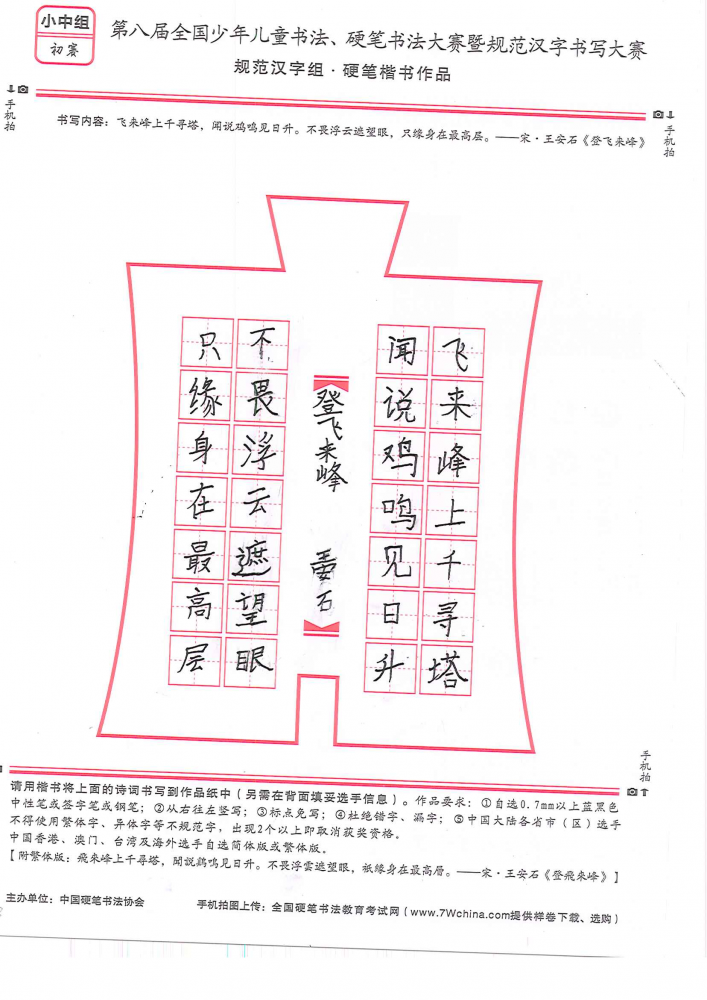 小中组
初赛
第八届全国少年儿童书法、硬笔书法大赛暨规范汉字书写大赛
规范汉字组·硬笔楷书作品
手机拍
手机拍
书写内容：飞来峰上千寻塔，闻说鸡鸣见日升。不畏浮云遮望眼，只缘身在最高层。——宋·王安石《登飞来峰》
飞来峰上千寻塔
闻说鸡鸣见日升
登飞来峰 王安石
不畏浮云遮望眼
只缘身在最高层
手机拍
手机拍
请用楷书将上面的诗词书写到作品纸中（另需在背面填妥选手信息）。作品要求：①自选0.7mm以上蓝黑色
中性笔或签字笔或钢笔；②从右往左竖写；③标点免写；④杜绝错字、漏字；⑤中国大陆各省市（区）选手
不得使用繁体字、异体字等不规范字，出现2个以上即取消获奖资格。
中国香港、澳门、台湾及海外选手自选简体版或繁体版。
【附繁体版：飛來峰上千尋塔，聞說鷄鳴見日升。不畏浮雲遮望眼，祇緣身在最高層。——宋·王安石《登飛來峰》】
主办单位：中国硬笔书法协会
手机拍图上传：全国硬笔书法教育考试网（www.7Wchina.com提供样卷下载、选购）